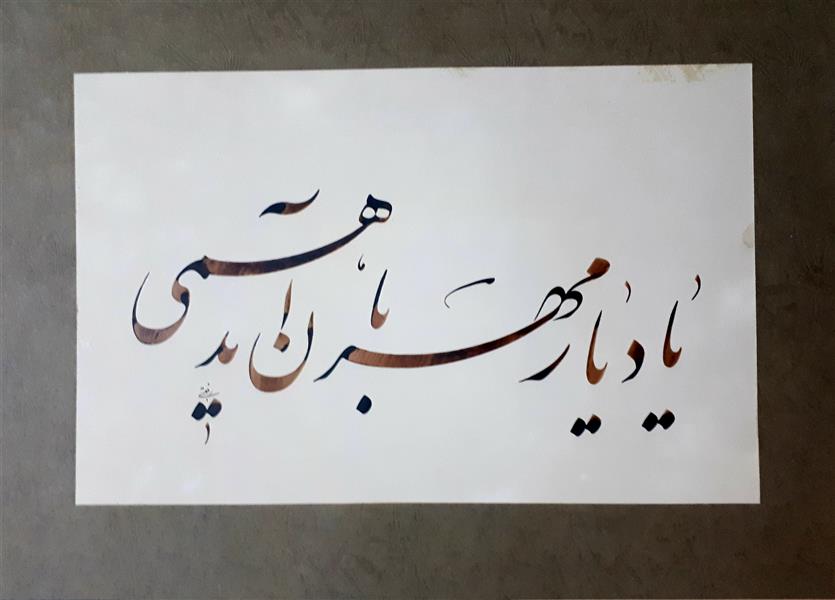 یاد یار مهربان آید همی